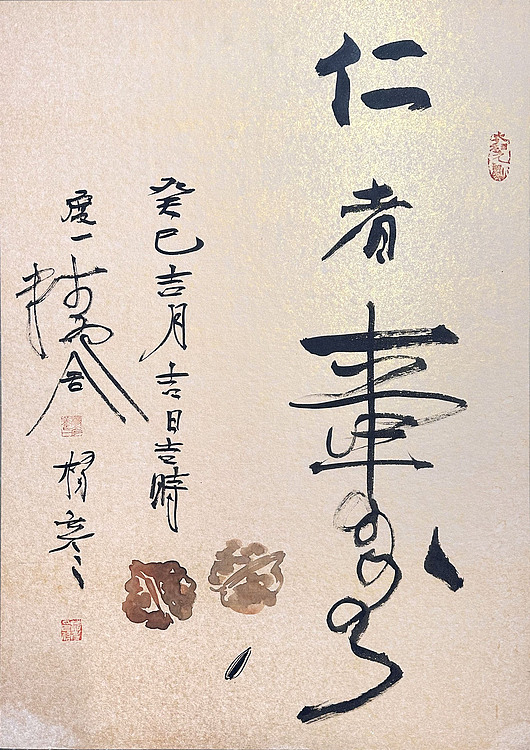 仁者壽
癸巳吉月吉日吉時
度一舍
楊彦